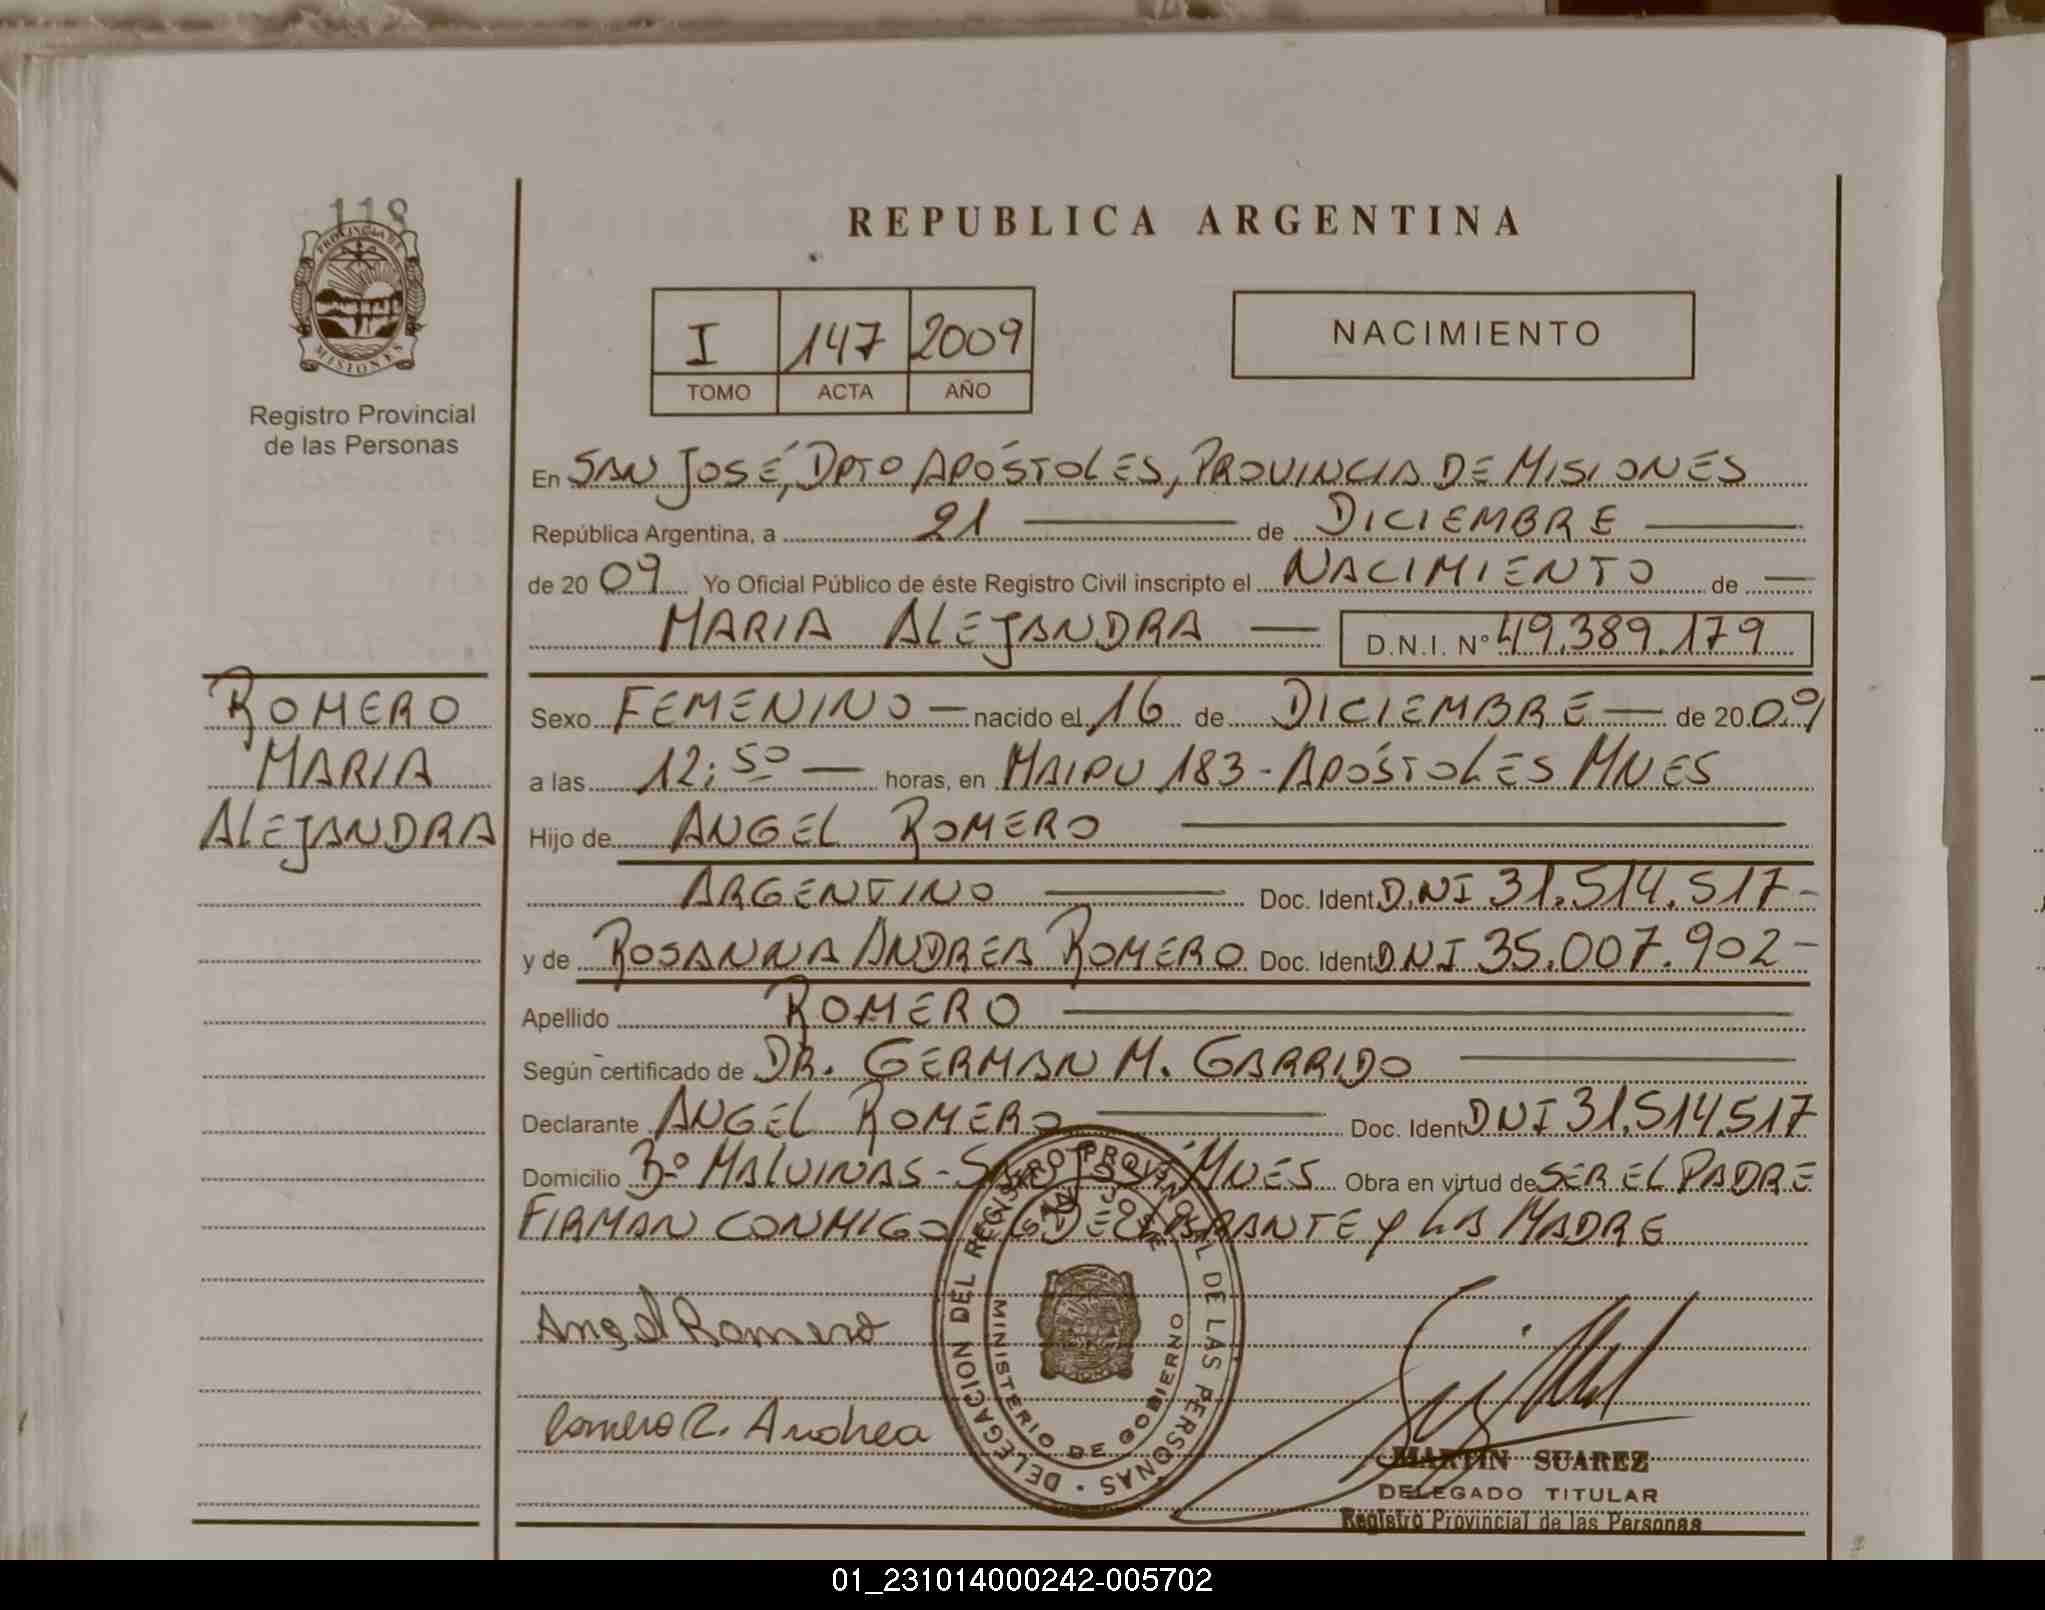 118
PROVINCIA DE
MISIONES
Registro Provincial
de las Personas
REPUBLICA ARGENTINA
I 147 2009
TOMO ACTA AÑO
NACIMIENTO
En SAN JOSÉ, DPTO APÓSTOLES, PROVINCIA DE MISIONES
República Argentina, a 21 de DICIEMBRE
de 2009 Yo Oficial Público de éste Registro Civil inscripto el NACIMIENTO de
MARIA ALEJANDRA D.N.I. Nº 49.389.179
ROMERO
MARIA
ALEJANDRA
Sexo FEMENINO nacido el 16 de DICIEMBRE de 2009
a las 12:50 horas, en MAIPU 183 - APÓSTOLES MNES
Hijo de ANGEL ROMERO
ARGENTINO Doc. Ident. D.NI 31.514.517-
y de ROSANNA ANDREA ROMERO Doc. Ident. DNI 35.007.902-
Apellido ROMERO
Según certificado de DR. GERMAN M. GARRIDO
Declarante ANGEL ROMERO Doc. Ident. DNI 31.514.517
Domicilio Bº MALVINAS - SAN JOSÉ MNES Obra en virtud de SER EL PADRE
FIRMAN CONMIGO EL DECLARANTE Y LA MADRE
Angel Romero
Romero R. Andrea
DELEGACION DEL REGISTRO PROVINCIAL DE LAS PERSONAS
SAN JOSE
MINISTERIO DE GOBIERNO
MARTIN SUAREZ
DELEGADO TITULAR
Registro Provincial de las Personas
01_231014000242-005702